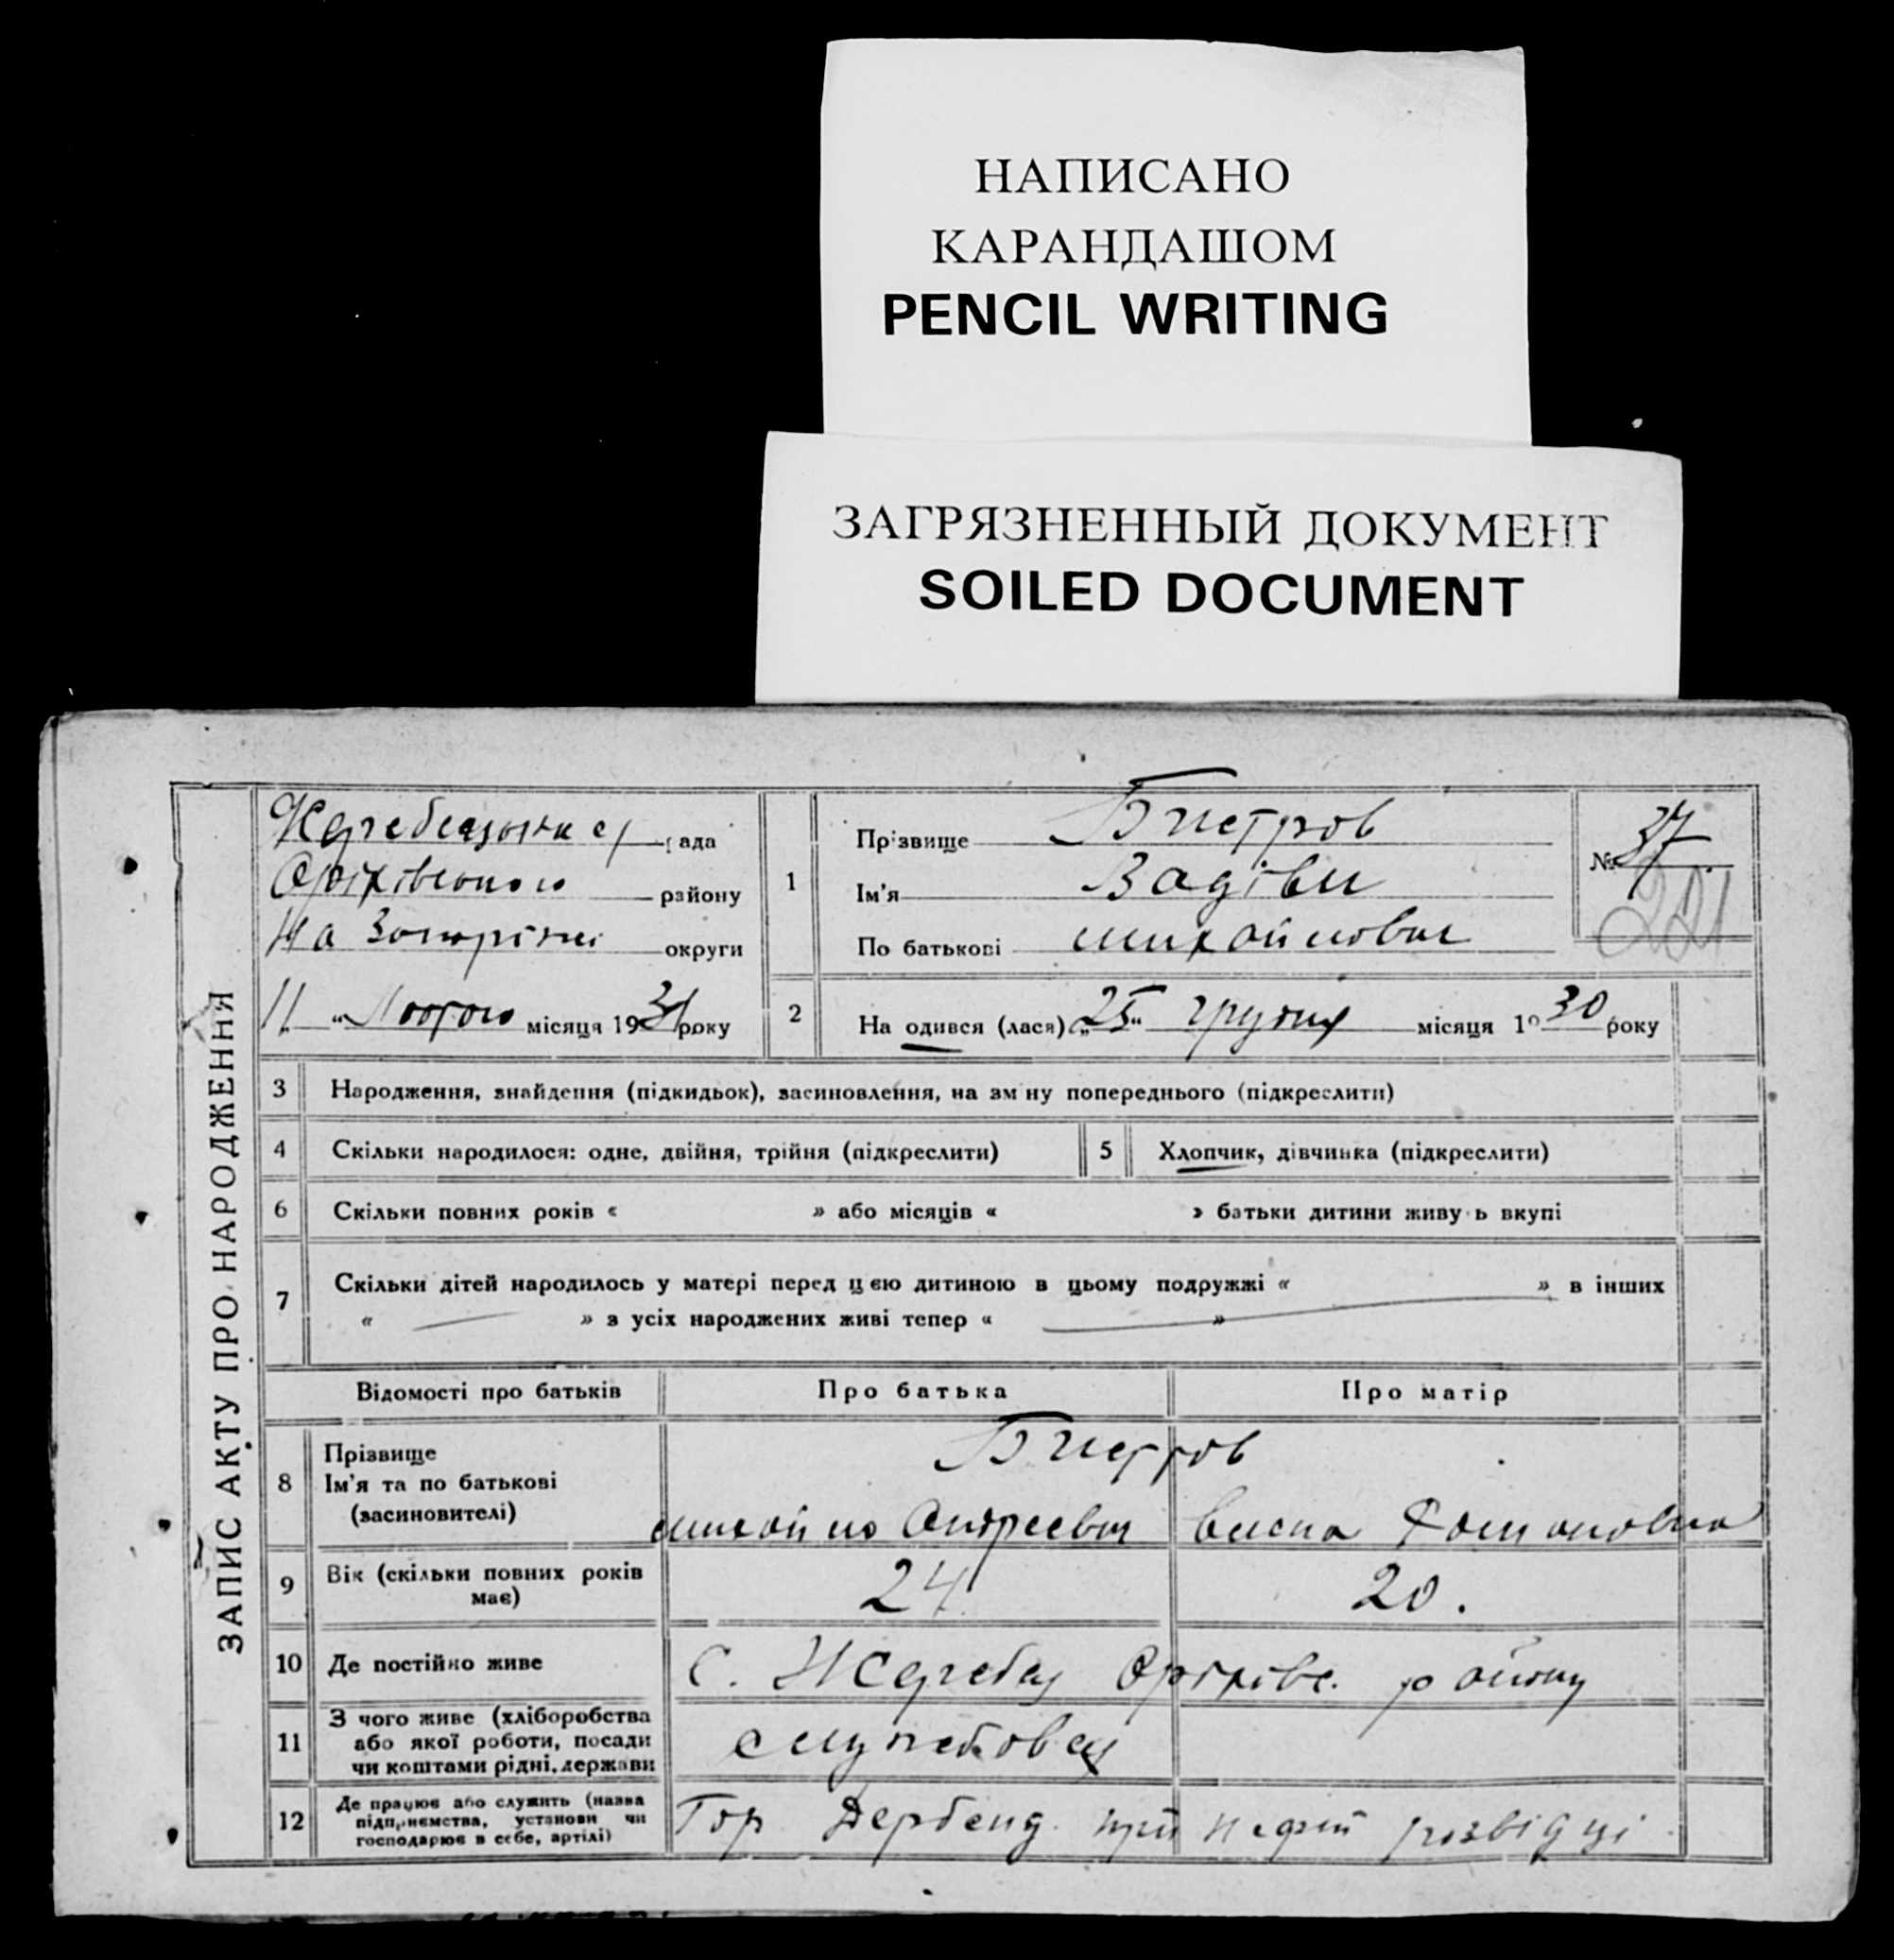 НАПИСАНО
КАРАНДАШОМ
PENCIL WRITING
ЗАГРЯЗНЕННЫЙ ДОКУМЕНТ
SOILED DOCUMENT
ЗАПИС АКТУ ПРО НАРОДЖЕННЯ
рада
Оріхівського району
На Запоріжжі округи
11 „ Лютого місяця 1931 року
1
Прізвище Бистров
Ім'я
По батькові Михайлович
№ 37
221
2
На одився (лася) „25" грудня місяця 1930 року
3 Народження, знайдення (підкидьок), засиновлення, на зм ну попереднього (підкреслити)
4 Скільки народилося: одне, двійня, трійня (підкреслити)
5 Хлопчик, дівчинка (підкреслити)
6 Скільки повних років « » або місяців « » батьки дитини живу ь вкупі
7 Скільки дітей народилось у матері перед цією дитиною в цьому подружжі « » в інших
« » з усіх народжених живі тепер « »
Відомості про батьків Про батька Про матір
8 Прізвище
Ім'я та по батькові
(засиновителі)
Бистров
Михайло Андреевич
9 Вік (скільки повних років має)
24 20.
10 Де постійно живе
С. Жеребец Оріхівс. району
11 З чого живе (хліборобства
або якої роботи, посади
чи коштами рідні, держави
служебовец
12 Де працює або служить (назва
підприємства, установи чи
господарює в себе, артілі)
Гор Дербенд при нефт розвідці